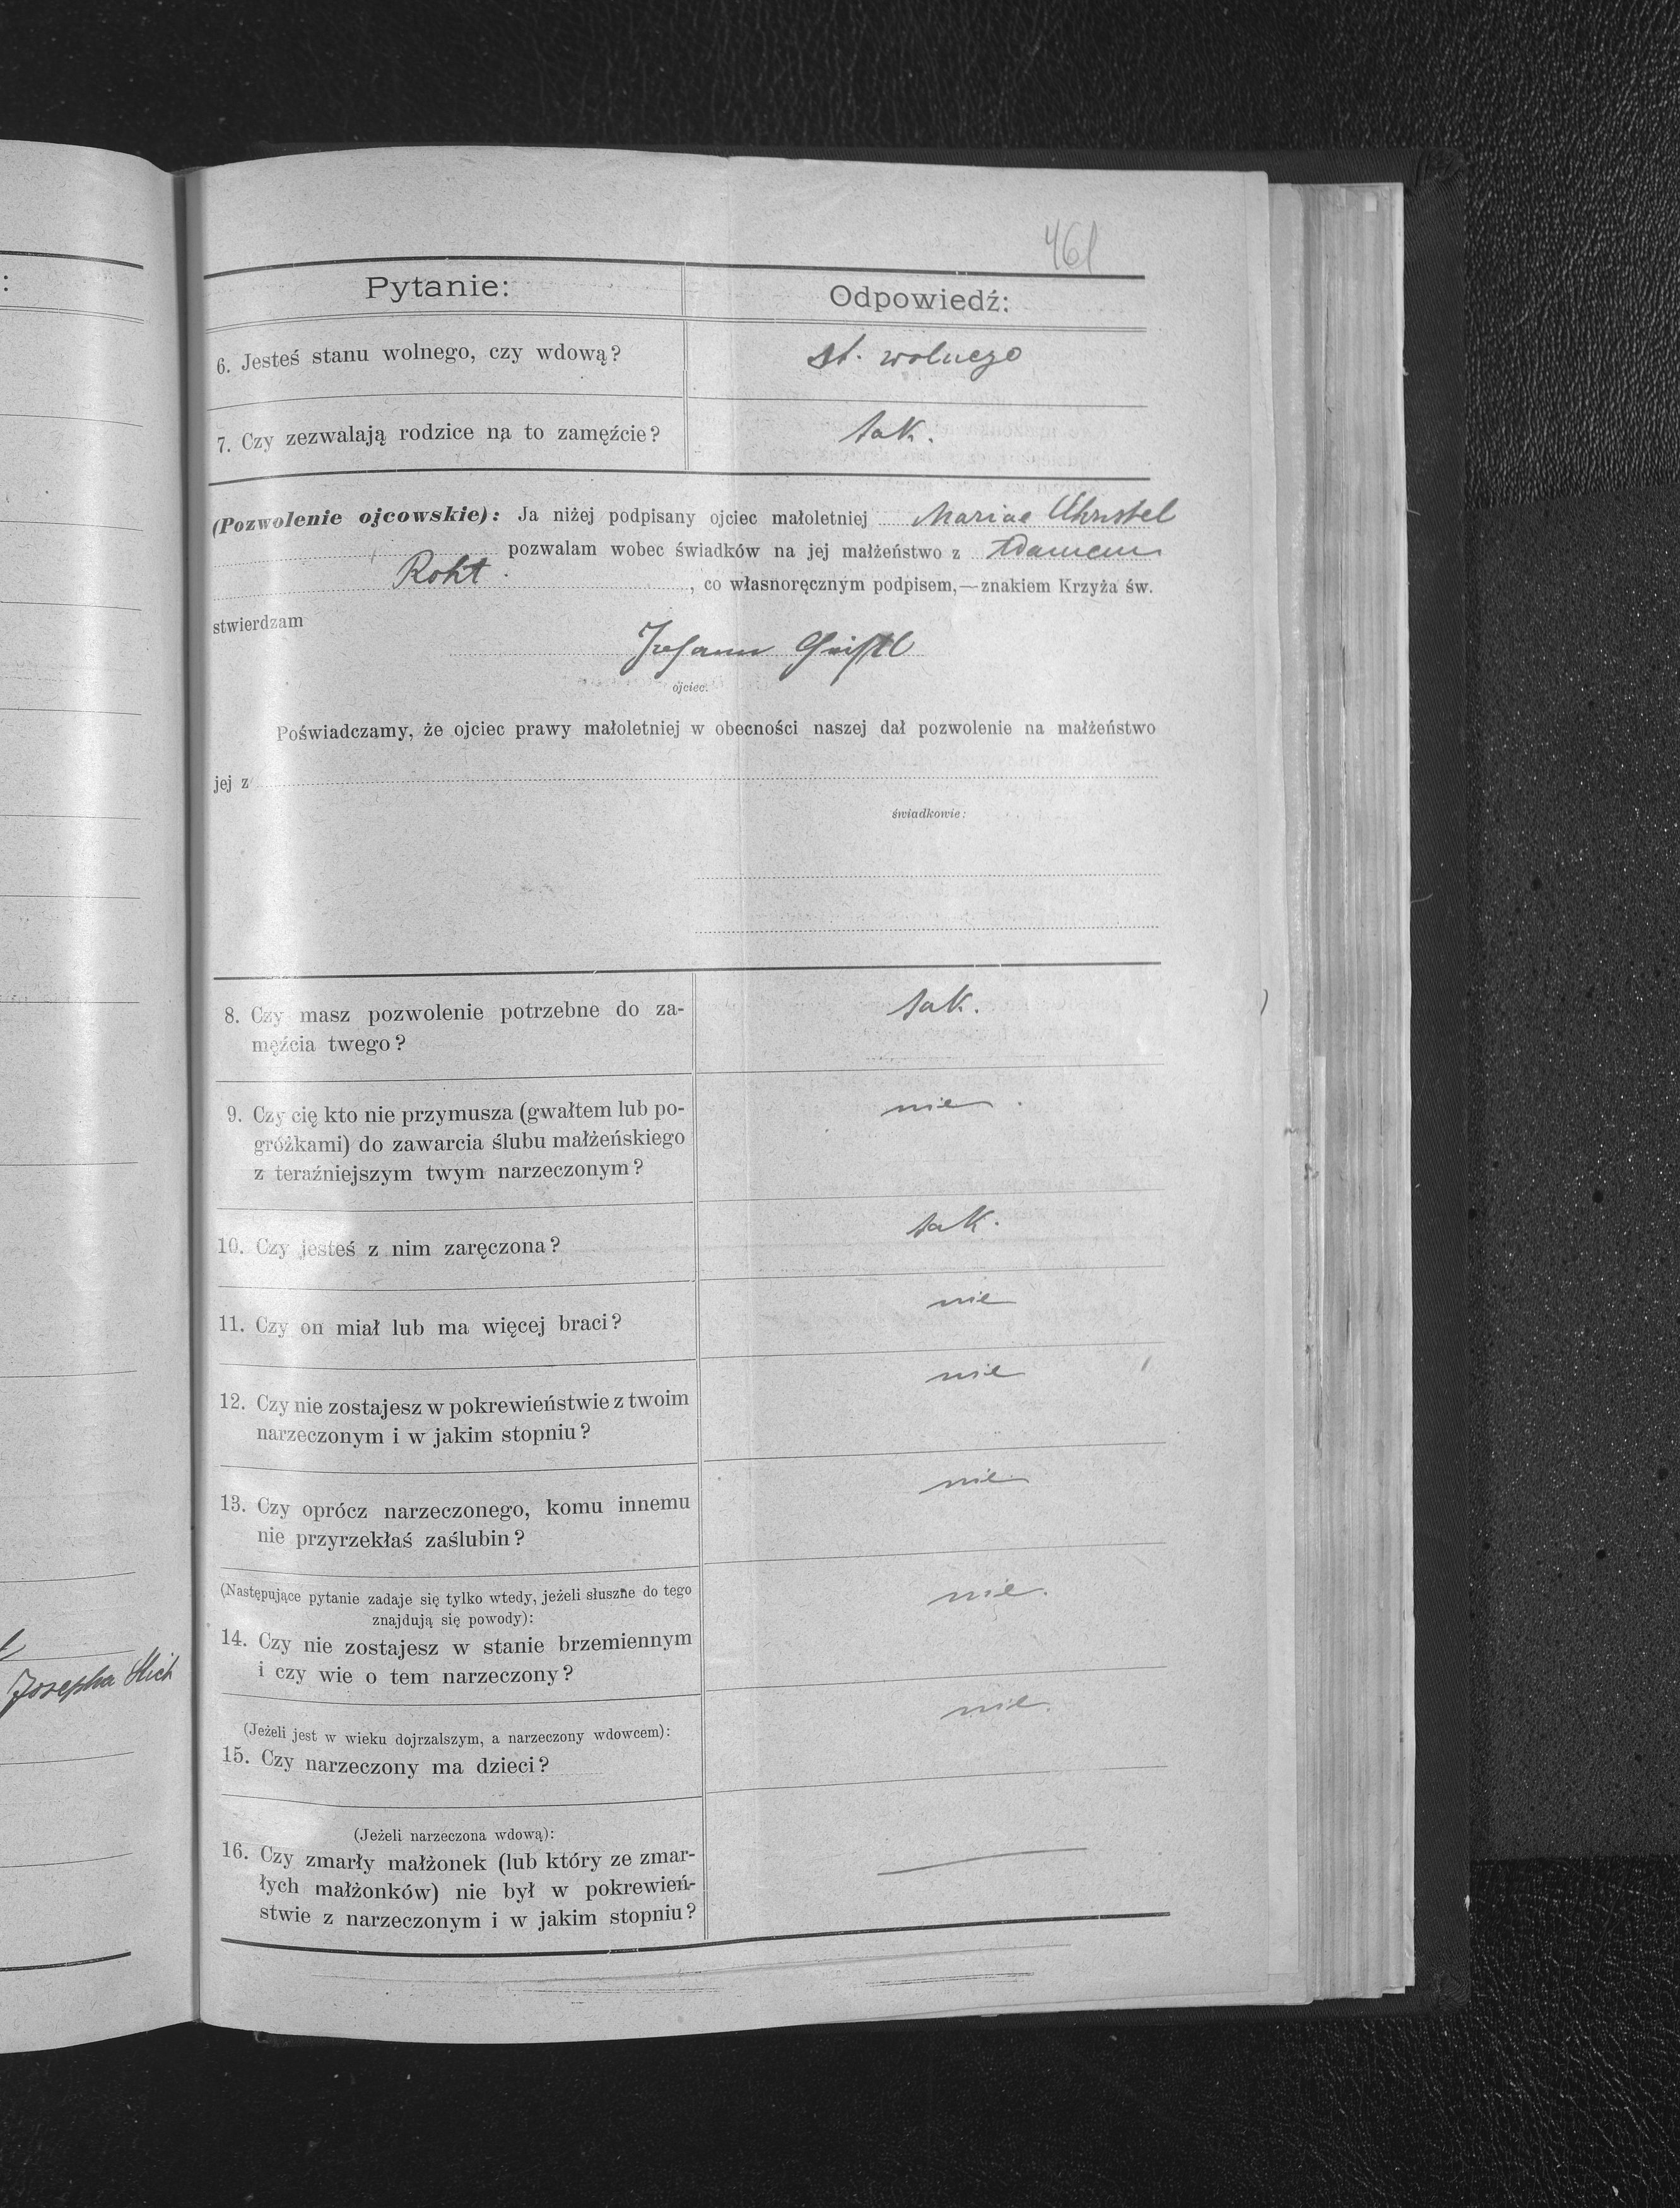 461
Pytanie:
Odpowiedź:
6. Jesteś stanu wolnego, czy wdową?
st. wolnego
7. Czy zezwalają rodzice na to zamęźcie?
tak.
(Pozwolenie ojcowskie): Ja niżej podpisany ojciec małoletniej Mariae Christel
pozwalam wobec świadków na jej małżeństwo z Adamem
Roht, co własnoręcznym podpisem,—znakiem Krzyża św.
stwierdzam
Johann
ojciec.
Poświadczamy, że ojciec prawy małoletniej w obecności naszej dał pozwolenie na małżeństwo
jej z
świadkowie:
8. Czy masz pozwolenie potrzebne do za-
męźcia twego?
tak.
9. Czy cię kto nie przymusza (gwałtem lub po-
gróżkami) do zawarcia ślubu małżeńskiego
z teraźniejszym twym narzeczonym?
nie.
10. Czy jesteś z nim zaręczona?
tak.
11. Czy on miał lub ma więcej braci?
nie
12. Czy nie zostajesz w pokrewieństwie z twoim
narzeczonym i w jakim stopniu?
nie
13. Czy oprócz narzeczonego, komu innemu
nie przyrzekłaś zaślubin?
nie
(Następujące pytanie zadaje się tylko wtedy, jeżeli słuszne do tego
znajdują się powody):
14. Czy nie zostajesz w stanie brzemiennym
i czy wie o tem narzeczony?
nie.
(Jeżeli jest w wieku dojrzalszym, a narzeczony wdowcem):
15. Czy narzeczony ma dzieci?
nie.
(Jeżeli narzeczona wdową):
16. Czy zmarły małżonek (lub który ze zmar-
łych małżonków) nie był w pokrewień-
stwie z narzeczonym i w jakim stopniu?
Josepha